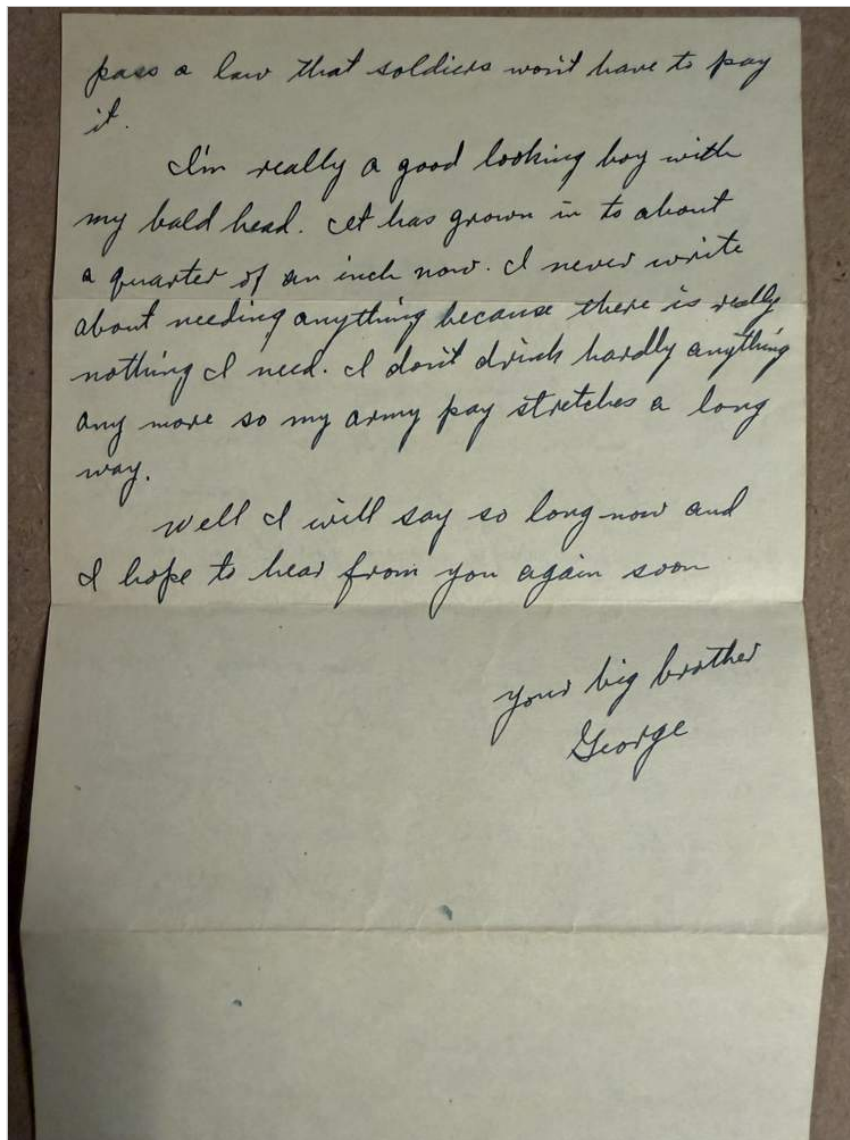 pass a law that soldiers won't have to pay
it.
I'm really a good looking boy with
my bald head. It has grown in to about
a quarter of an inch now. I never write
about needing anything because there is really
nothing I need. I don't drink hardly anything
any more so my army pay stretches a long
way.
Well I will say so long now and
I hope to hear from you again soon
Your big brother
George